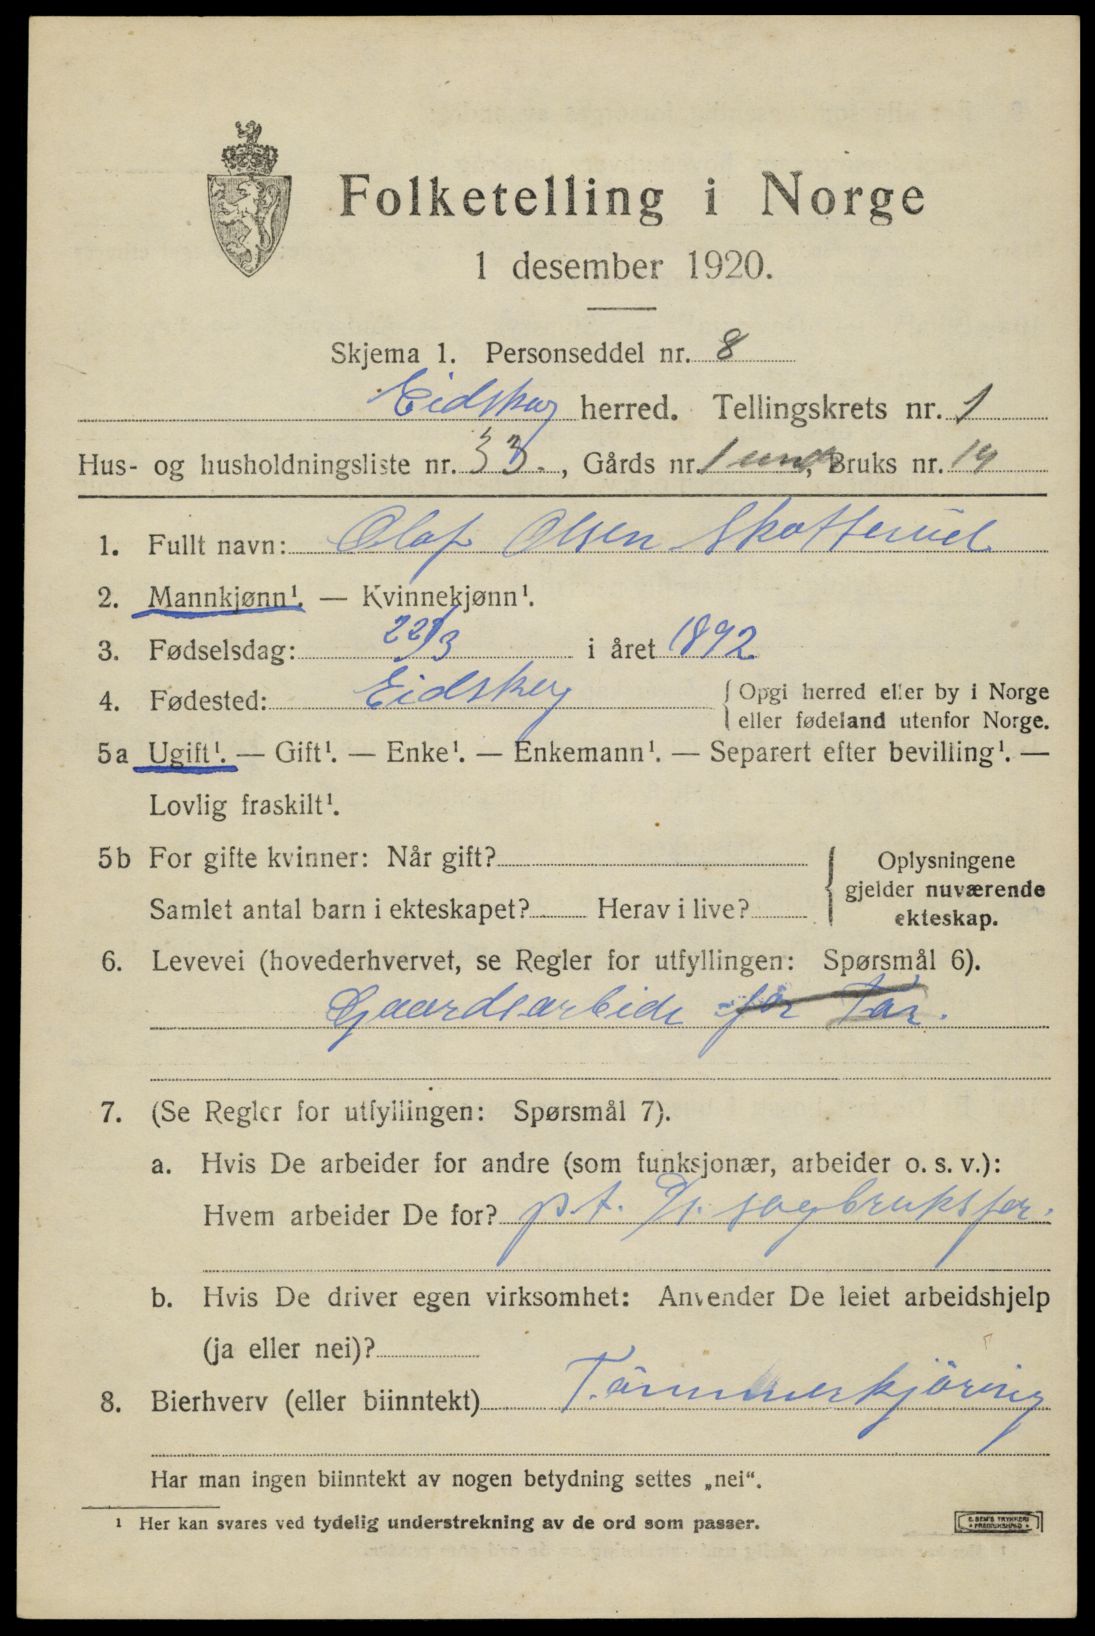 Folketelling i Norge
1 desember 1920.
Skjema 1. Personseddel nr. 8
Eidskog herred. Tellingskrets nr. 1
Hus- og husholdningsliste nr. 33., Gårds nr. 1 , Bruks nr. 14
1. Fullt navn: Olaf Olsen Skotterud
2. Mannkjønn¹. — Kvinnekjønn¹.
3. Fødselsdag: 22/3 i året 1892
4. Fødested: Eidskog {Opgi herred eller by i Norge
eller fødeland utenfor Norge.
5a Ugift¹. — Gift¹. — Enke¹. — Enkemann¹. — Separert efter bevilling¹. —
Lovlig fraskilt¹.
5b For gifte kvinner: Når gift?
Samlet antal barn i ekteskapet? Herav i live?
{Oplysningene
gjelder nuværende
ekteskap.
6. Levevei (hovederhvervet, se Regler for utfyllingen: Spørsmål 6).
Gaardsarbeide for Far.
7. (Se Regler for utfyllingen: Spørsmål 7).
a. Hvis De arbeider for andre (som funksjonær, arbeider o. s. v.):
Hvem arbeider De for? p.t. sagbruksfor.
b. Hvis De driver egen virksomhet: Anvender De leiet arbeidshjelp
(ja eller nei)?
8. Bierhverv (eller biinntekt) Tömmerkjöring
Har man ingen biinntekt av nogen betydning settes „nei".
¹ Her kan svares ved tydelig understrekning av de ord som passer.